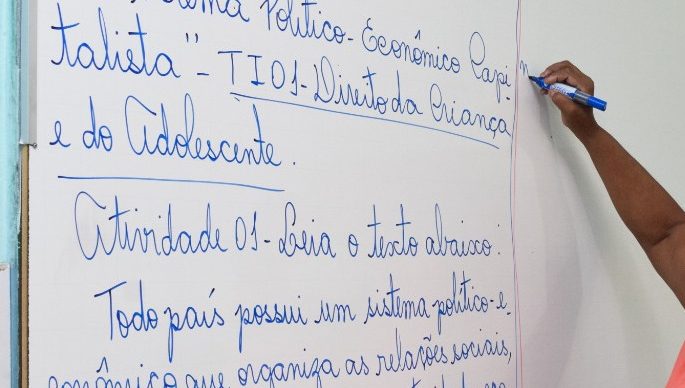 Político-Econômico Capi-
talista" - TI 01 - Direito da Criança
e do Adolescente.
Atividade 01 - Leia o texto abaixo:
Todo país possui um sistema político-e
conômico que organiza as relações sociais,